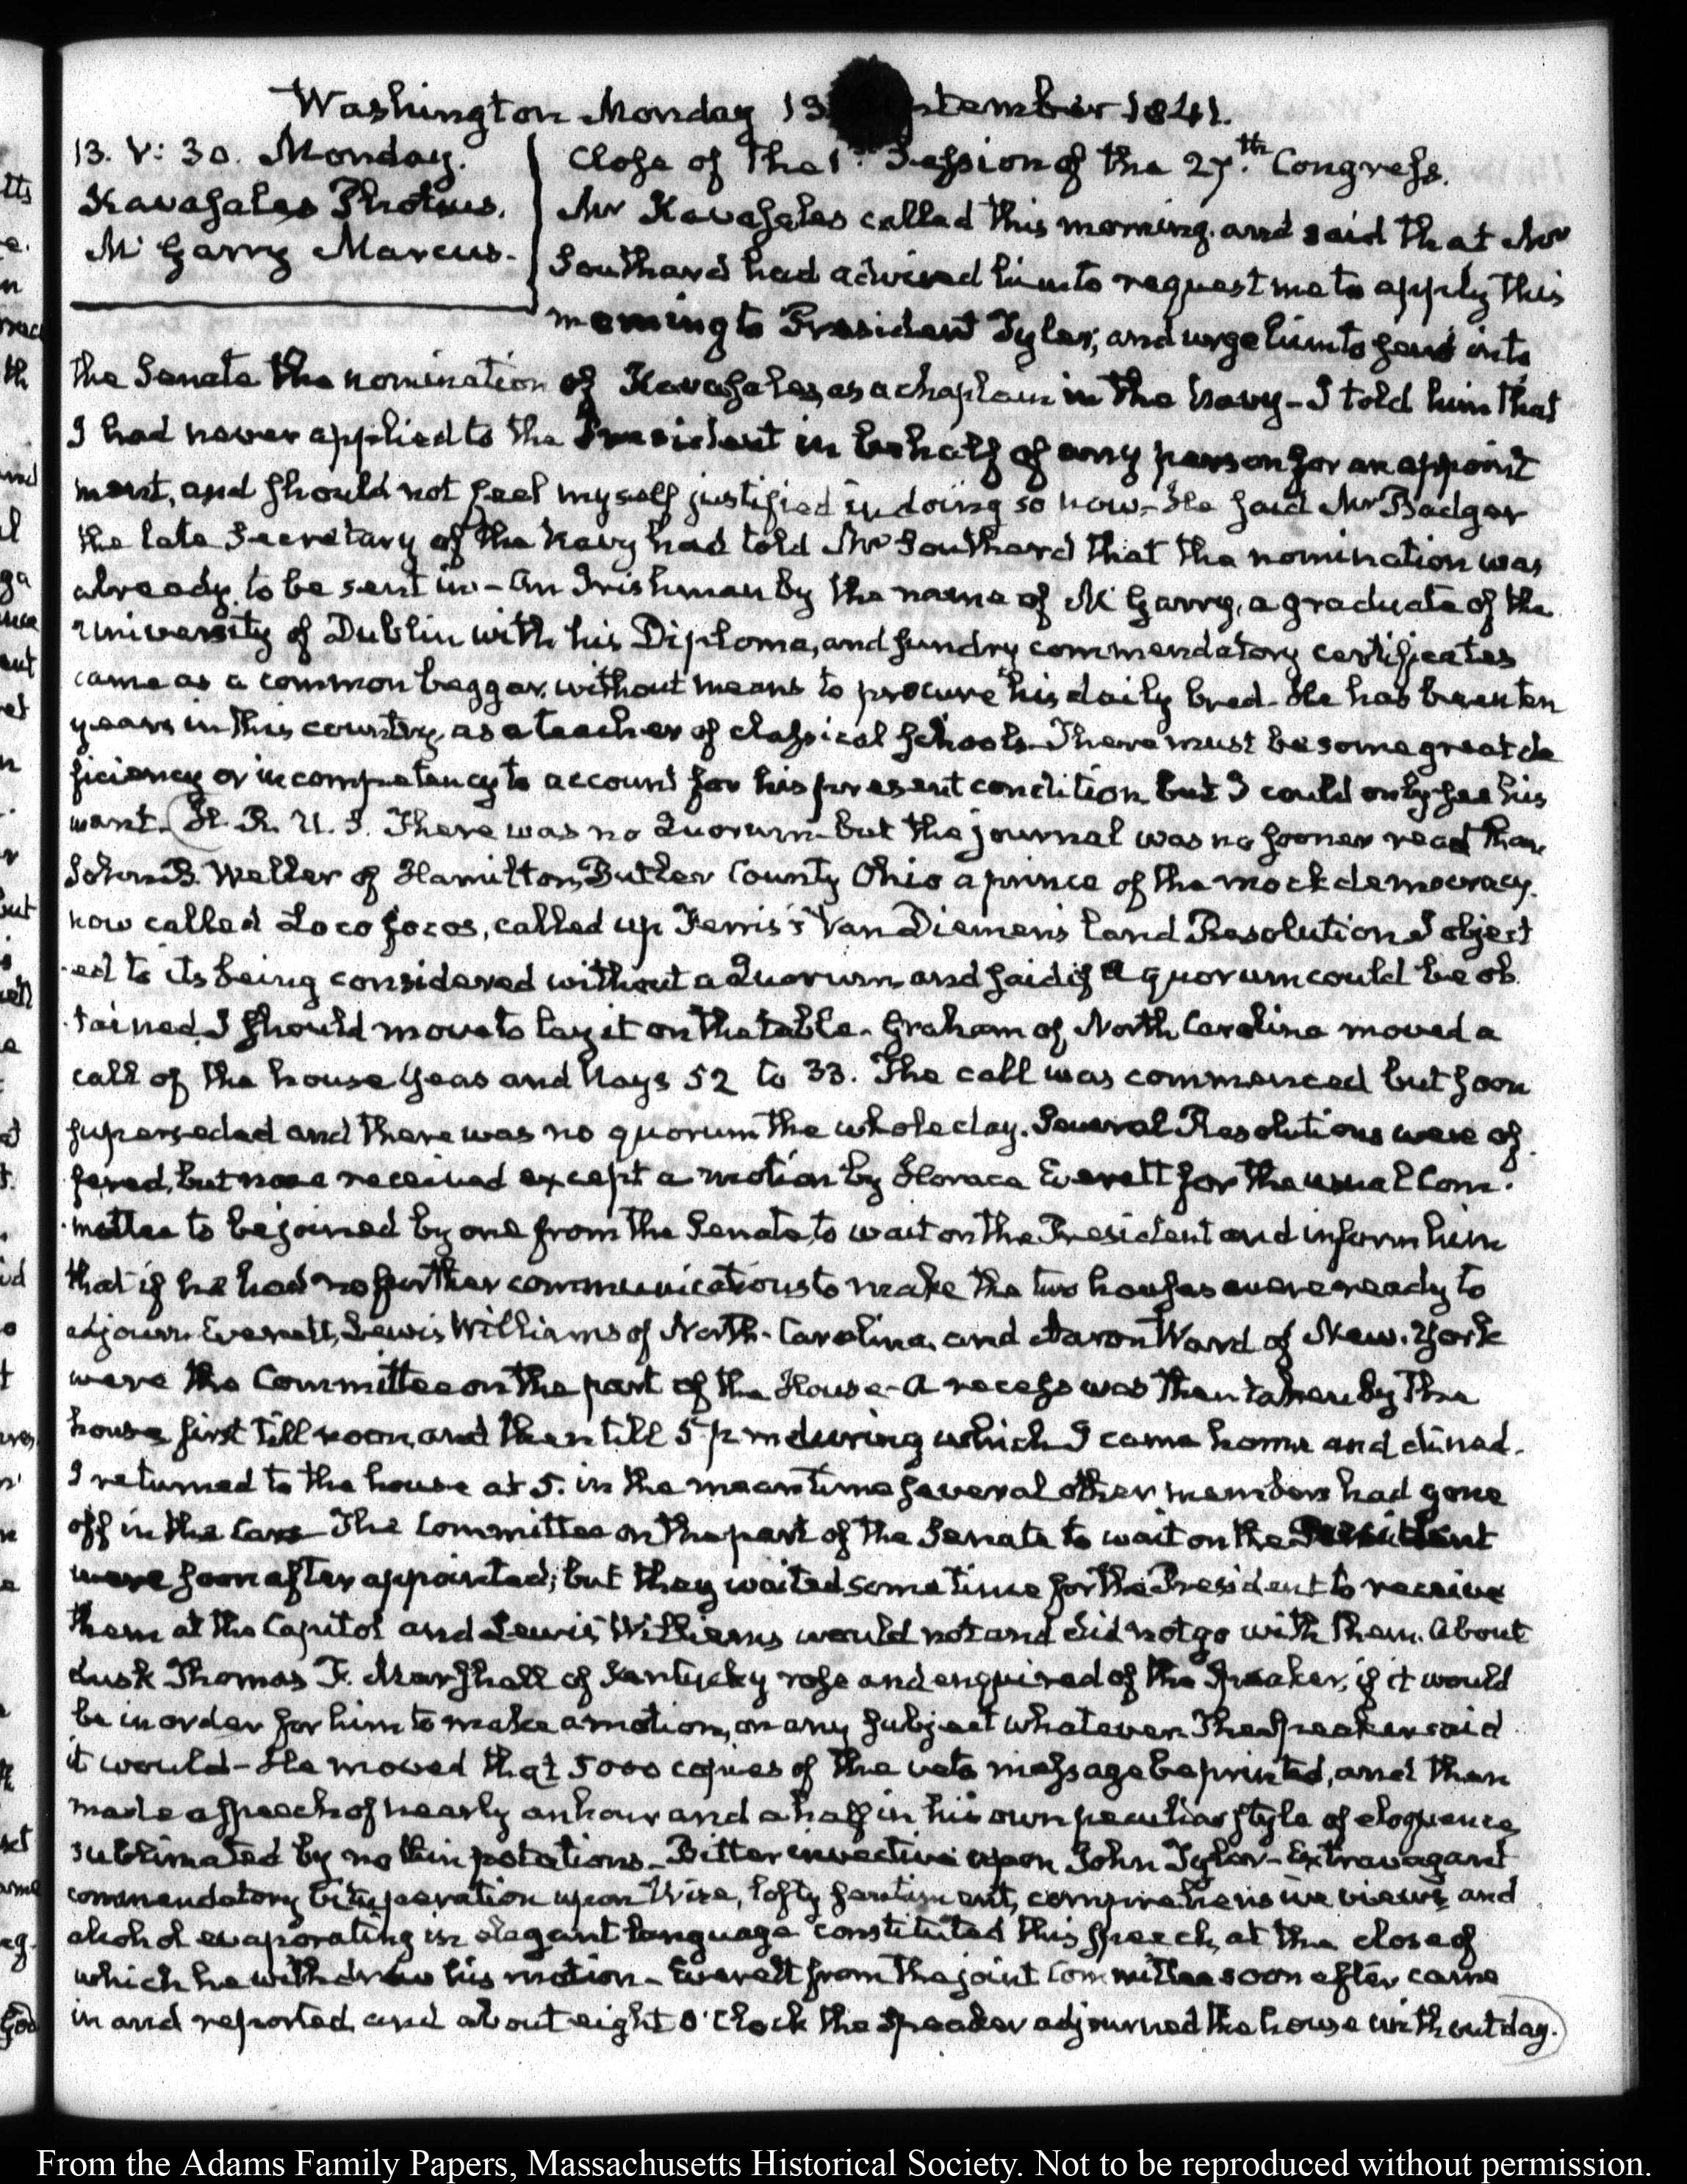 Washington Monday 13 tember 1841.
13. V: 30. Monday.
Kavasales Photius.
Mc Garry Marcus.
Close of the 1st Session of the 27th Congress.
Mr Kavasales called this morning, and said that Mr
Southard had advised him to request me to apply this
morning to President Tyler, and urge him to send into
the Senate the nomination of Kavasales, as a chaplain in the Navy – I told him that
I had never applied to the President in behalf of any person for an appoint
ment, and should not feel myself justified in doing so now – He said Mr Badger
the late Secretary of the Navy had told Mr Southard that the nomination was
already to be sent in – An Irishman by the name of Mc Garry, a graduate of the
University of Dublin with his Diploma, and sundry commendatory certificates
came as a common beggar, without means to procure his daily bred – He has been ten
years in this country, as a teacher of classical schools – There must be some great de
ficiency or incompetency to account for his present condition but I could only see his
want. (H. R. U. S. There was no Quorum – but the journal was no sooner read than
John B. Weller of Hamilton, Butler County Ohio a prince of the mock democracy.
now called Loco focos, called up Ferris's Van Diemen's land Resolution I object
-ed to its being considered without a Quorum, and said if a quorum could be ob
-tained I should move to lay it on the table – Graham of North Carolina moved a
call of the house Yeas and Nays 52 to 33. The call was commenced but soon
superseded and there was no quorum the whole day. Several Resolutions were of
fered, but none received except a motion by Horace Everett for the usual Com-
-mittee to be joined by one from the Senate, to wait on the President and inform him
that if he had no further communications to make the two houses were ready to
adjourn. Everett, Lewis Williams of North-Carolina, and Aaron Ward of New-York
were the Committee on the part of the House – A recess was then taken by the
house first till noon, and then till 5 p m during which I came home and dined –
I returned to the house at 5. in the mean time several other members had gone
off in the Cars – The Committee on the part of the Senate to wait on the President
were soon after appointed; but they waited some time for the President to receive
them at the Capitol and Lewis Williams would not and did not go with them. About
dusk Thomas F. Marshall of Kentucky rose and enquired of the Speaker, if it would
be in order for him to make a motion, on any subject whatever. The Speaker said
it would – He moved that 5000 copies of the veto message be printed, and then
made a speech of nearly an hour and a half in his own peculiar style of eloquence
sublimated by no thin potations – Bitter invective upon John Tyler – Extravagant
commendatory vituperation upon Wise, lofty sentiment, comprehensive views and
alcohol evaporating in elegant language constituted this speech, at the close of
which he withdrew his motion – Everett from the joint Committee soon after came
in and reported, and about eight O'Clock the Speaker adjourned the house without day.)
From the Adams Family Papers, Massachusetts Historical Society. Not to be reproduced without permission.